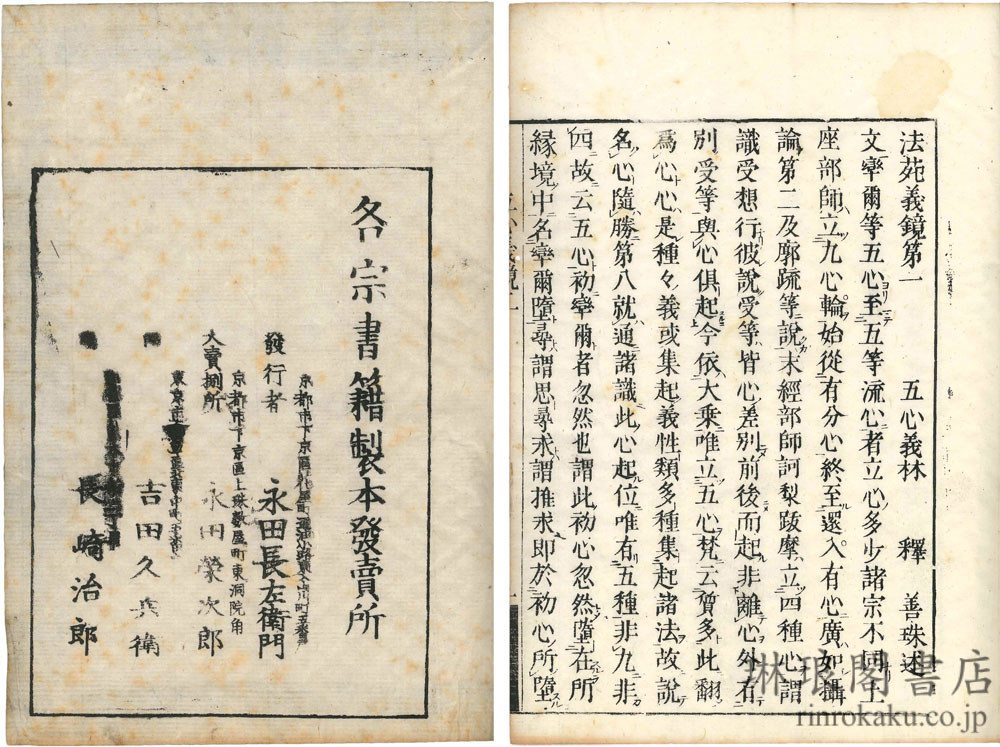 法苑義鏡第一 五心義林 釋 善珠述
文率爾等五心至五等流心者立心多少諸宗不同上
座部師立九心輪始從有分心終至還入有心廣如攝
論第二及廓疏等說末經部師訶梨跋摩立四種心謂
識受想行彼說受等皆心差別前後而起非離心外有
別受等與心俱起今依大乗唯立五心梵云質多此翻
爲心心是種々義或集起義性類多種集起諸法故說
名心隨勝第八就通諸識此心起位唯有五種非九非
四故云五心初率爾者忽然也謂此初心忽然墮在所
縁境中名率爾墮尋謂思尋求謂推求即於初心所墮
各宗書籍製本發賣所
發行者 永田長左衛門
京都市下京區上珠數屋町東洞院角
大賣捌所 永田榮次郎
吉田久兵衛
長崎治郎
琳琅閣書店
rinrokaku.co.jp